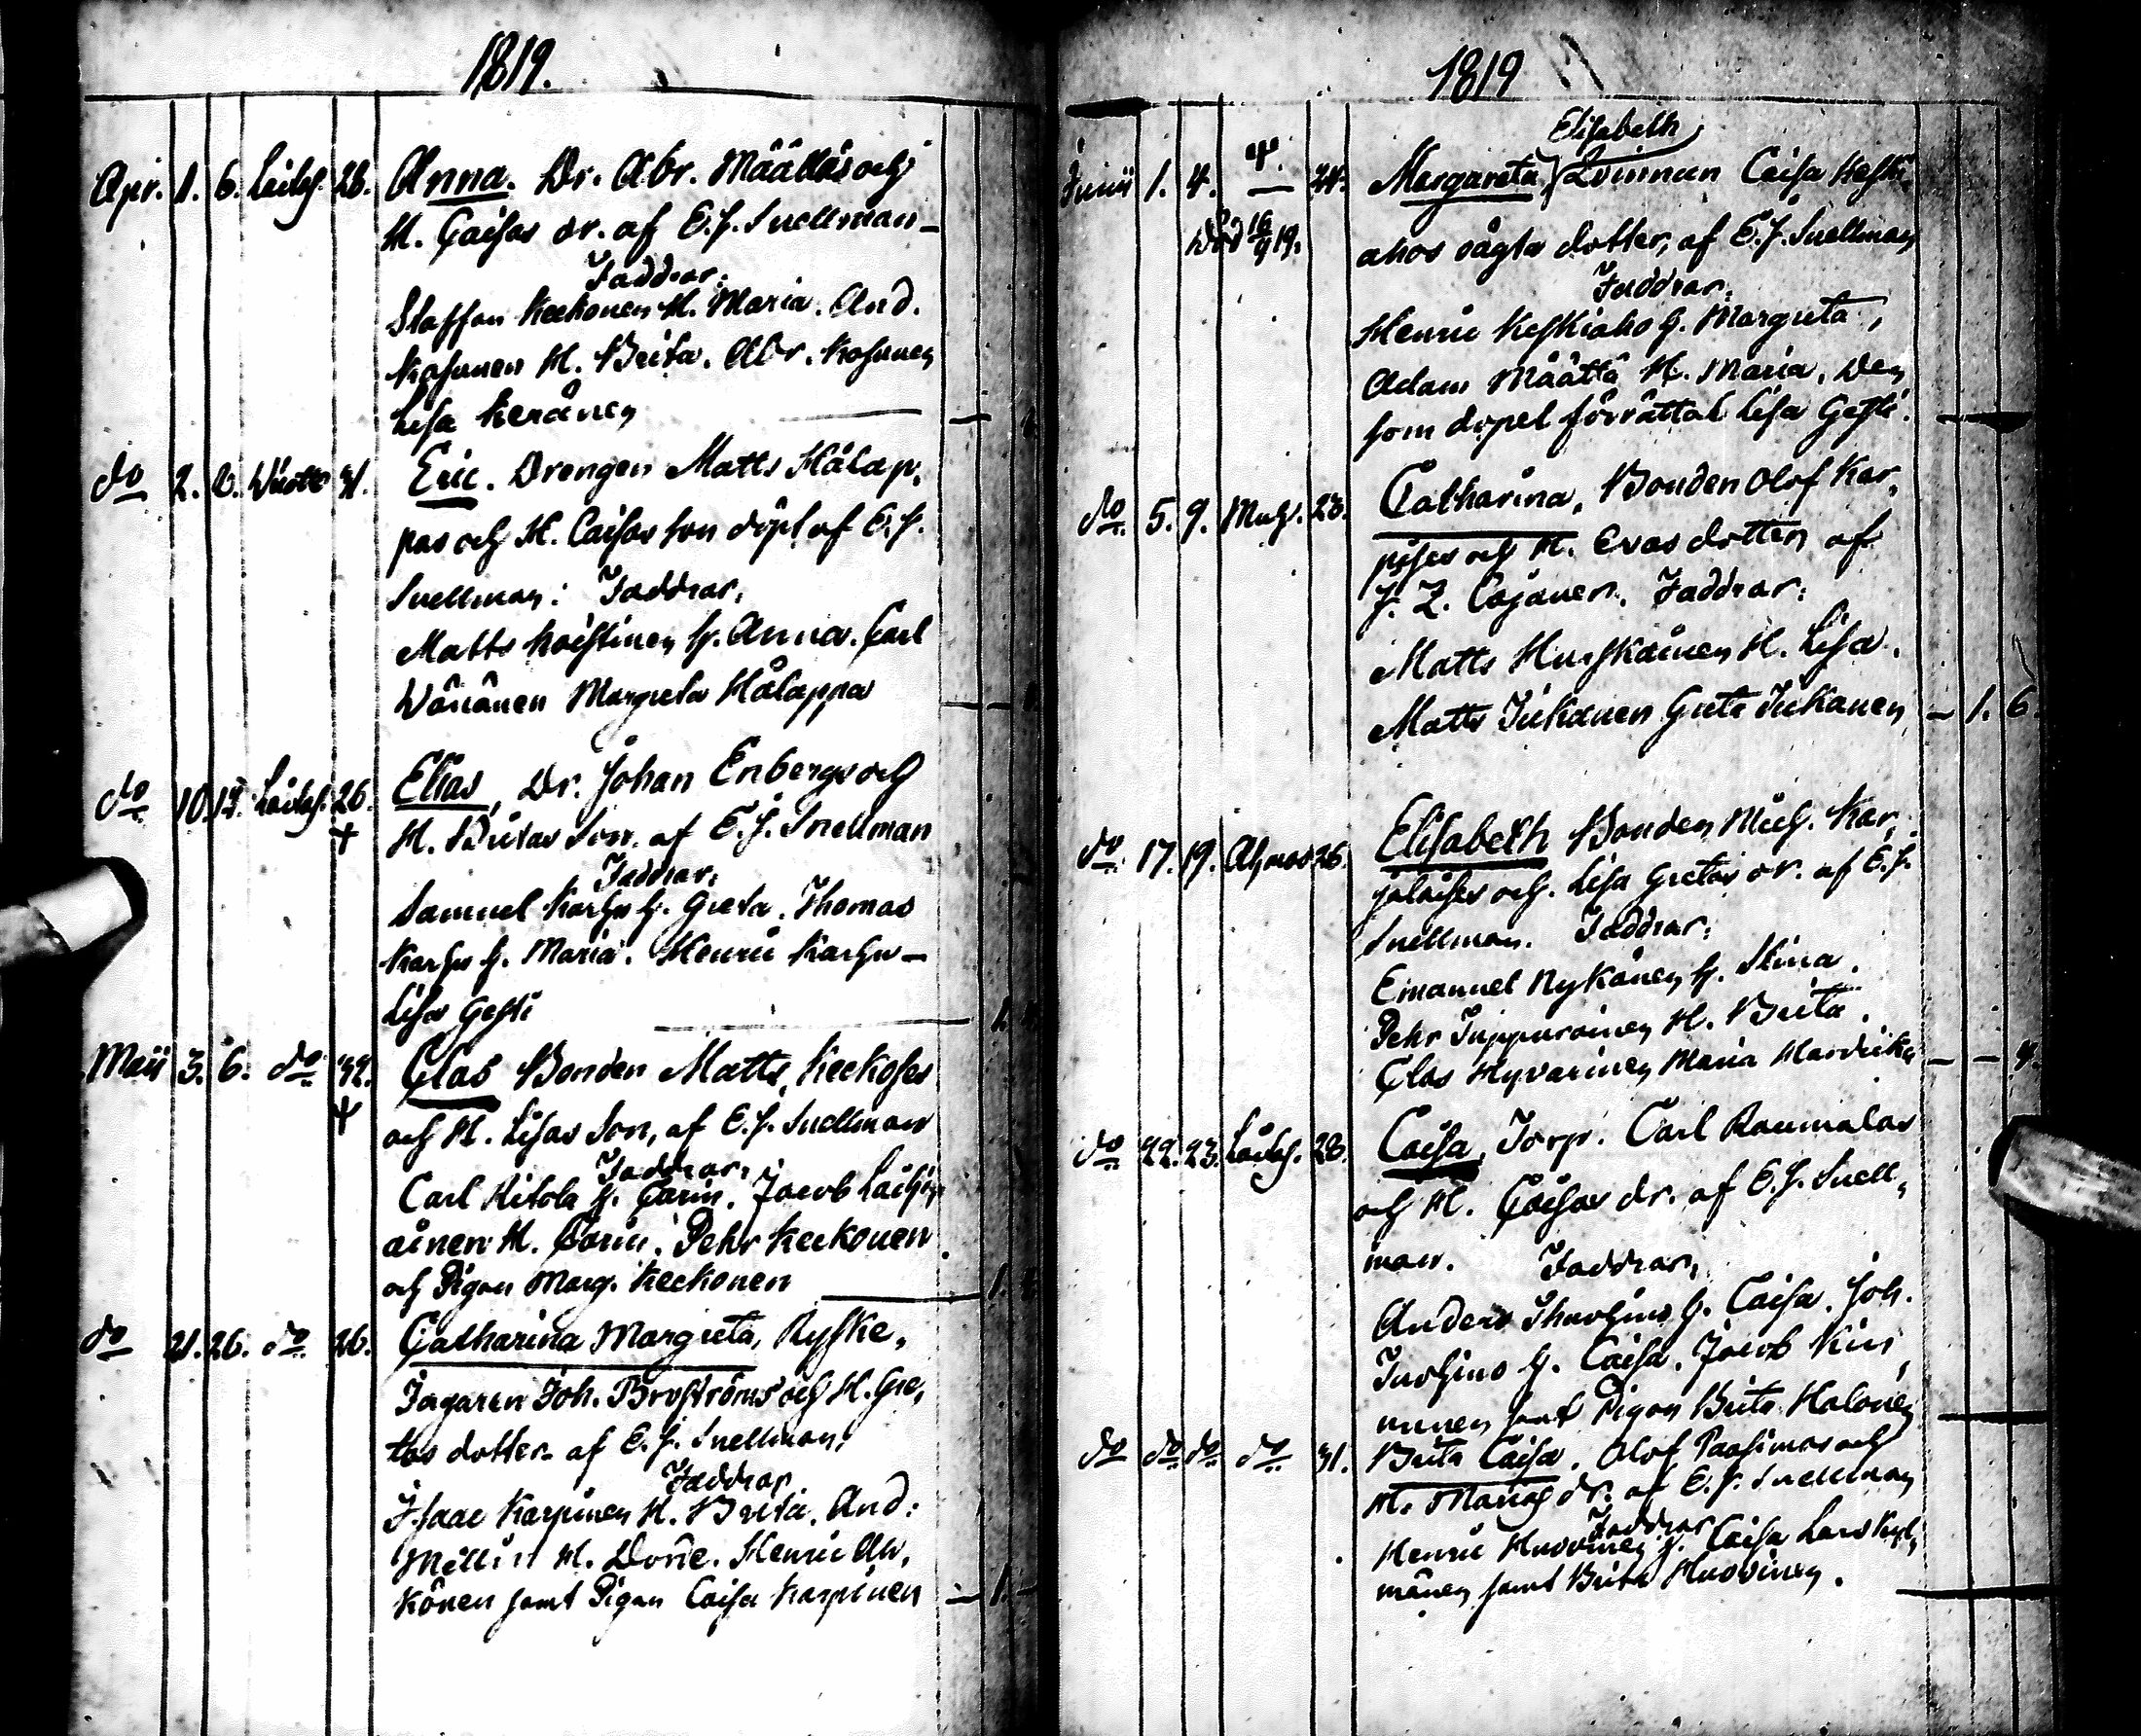 1819.
Apr. 1. 6. 28. Anna. Dr. Abr. Määttäs och
H. Caisas dr. af E. J. Snellman
Faddrar:
Staffan Keckonen H. Maria. And.
Kosunen H. Brita. Abr. Kosunen
Lisa Keränen
do 2. 31. Eric. Drengen Matts Hålap,
pas och H. Caisas son döpt af E. J.
Snellman: Faddrar,
Matts Koistinen H. Anna. Carl
Wänänen Margreta Hålappa
do 10. 26. Elias, Dr. Johan Enbergs och
H. Britas Son. af E. J. Snellman
Faddrar:
Samuel Karhu H. Greta. Thomas
Karhu H. Maria. Henric Karhu
Lisa Gesti
Maii 3. 6. do 32. Clas Bonden Matts Keckoses
och H. Lisas Son, af E. J. Snellman
Faddrar:
Carl Kitola H. Carin. Jacob
ainen H. Carin. Pehr Keckonen
och Pigan Marg. Keckonen
do 21. 26. do 26. Catharina Margreta, Ryske,
Jagaren Joh. Broströms och H. Gre,
tas dotter af E. J. Snellman,
Faddrar
Isaac Karpinen H. Brita. And:
Mellin H. Dorde. Henric
Könen samt Pigan Caisa Karpinen
1819
Elisabeth
Junii 1. 4. Margareta Qvinnan Caisa Keski,
ahos oägta dotter, af E. J. Snellman
Död 16/9 19.
Faddrar:
Henric Keskiaho H. Margreta,
Adam Määttä H. Maria. Den
som dopet förrättat Lisa Gesti.
do 5. 9. Muh. 23. Catharina, Bonden Olof Kar,
pises och H. Evas dotter af
J. Z. Cajanen. Faddrar:
Matts Hurskainen H. Lisa.
Matts Jukanen Greta Jukanen 1. 6
do 17. 19. Ahmas 26. Elisabeth Bonden Mich. Kar,
jalaises och Lisa Gretas dr. af E. J.
Snellman. Faddrar:
Emanuel Nykänen H. Stina.
Pehr Juppurainen H. Brita.
Clas Hyvärinen Maria
do 22. 23. 28. Caisa, Torp. Carl Raumalas
och H. Caisas dr. af E. J. Snell,
man. Faddrar,
Anders H. Caisa. Joh.
H. Caisa. Jacob Kin,
nunen samt Pigan Brita Halonen
do do do do 31. Brita Caisa. Olof och
H. Marias dr. af E. J. Snellman
Faddrar
Henric Huovinen H. Caisa Lars Kyl,
mänen samt Brita Huovinen.